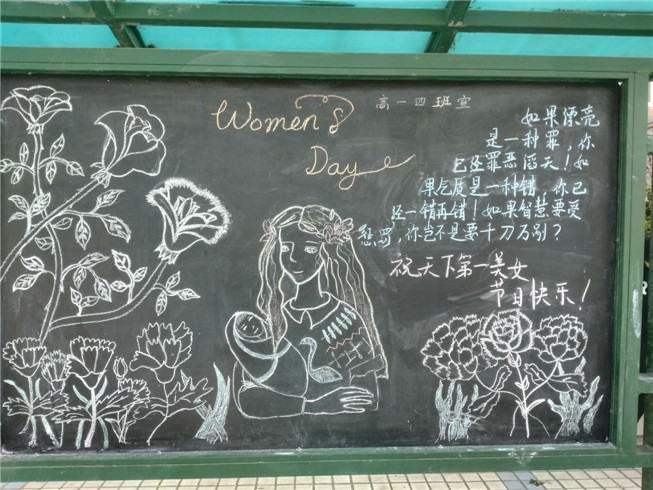 Women's
Day
高一四班宣
如果漂亮
是一种罪，你
已经罪恶滔天！如
果气质是一种错，你已
经一错再错！如果智慧要受
惩罚，你岂不是要千刀万剐？
祝天下第一美女
节日快乐！